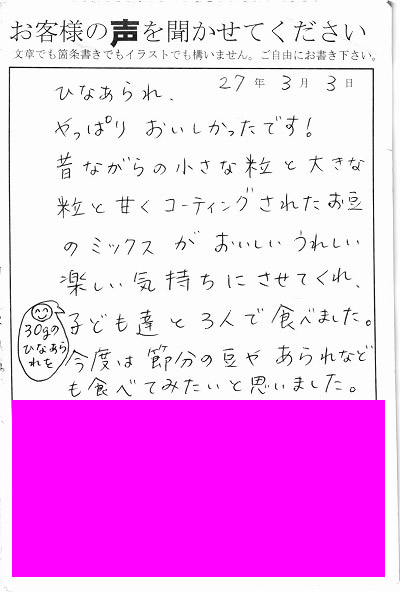 お客様の声を聞かせてください
文章でも箇条書きでもイラストでも構いません。ご自由にお書き下さい。
27年 3月 3日
ひなあられ、
やっぱり おいしかったです!
昔ながらの小さな粒と大きな
粒と甘くコーティングされたお豆
のミックスが おいしい うれしい
楽しい気持ちにさせてくれ、
子ども達と3人で食べました。
30gの
ひなあら
れを
今度は節分の豆や あられなど
も食べてみたいと思いました。